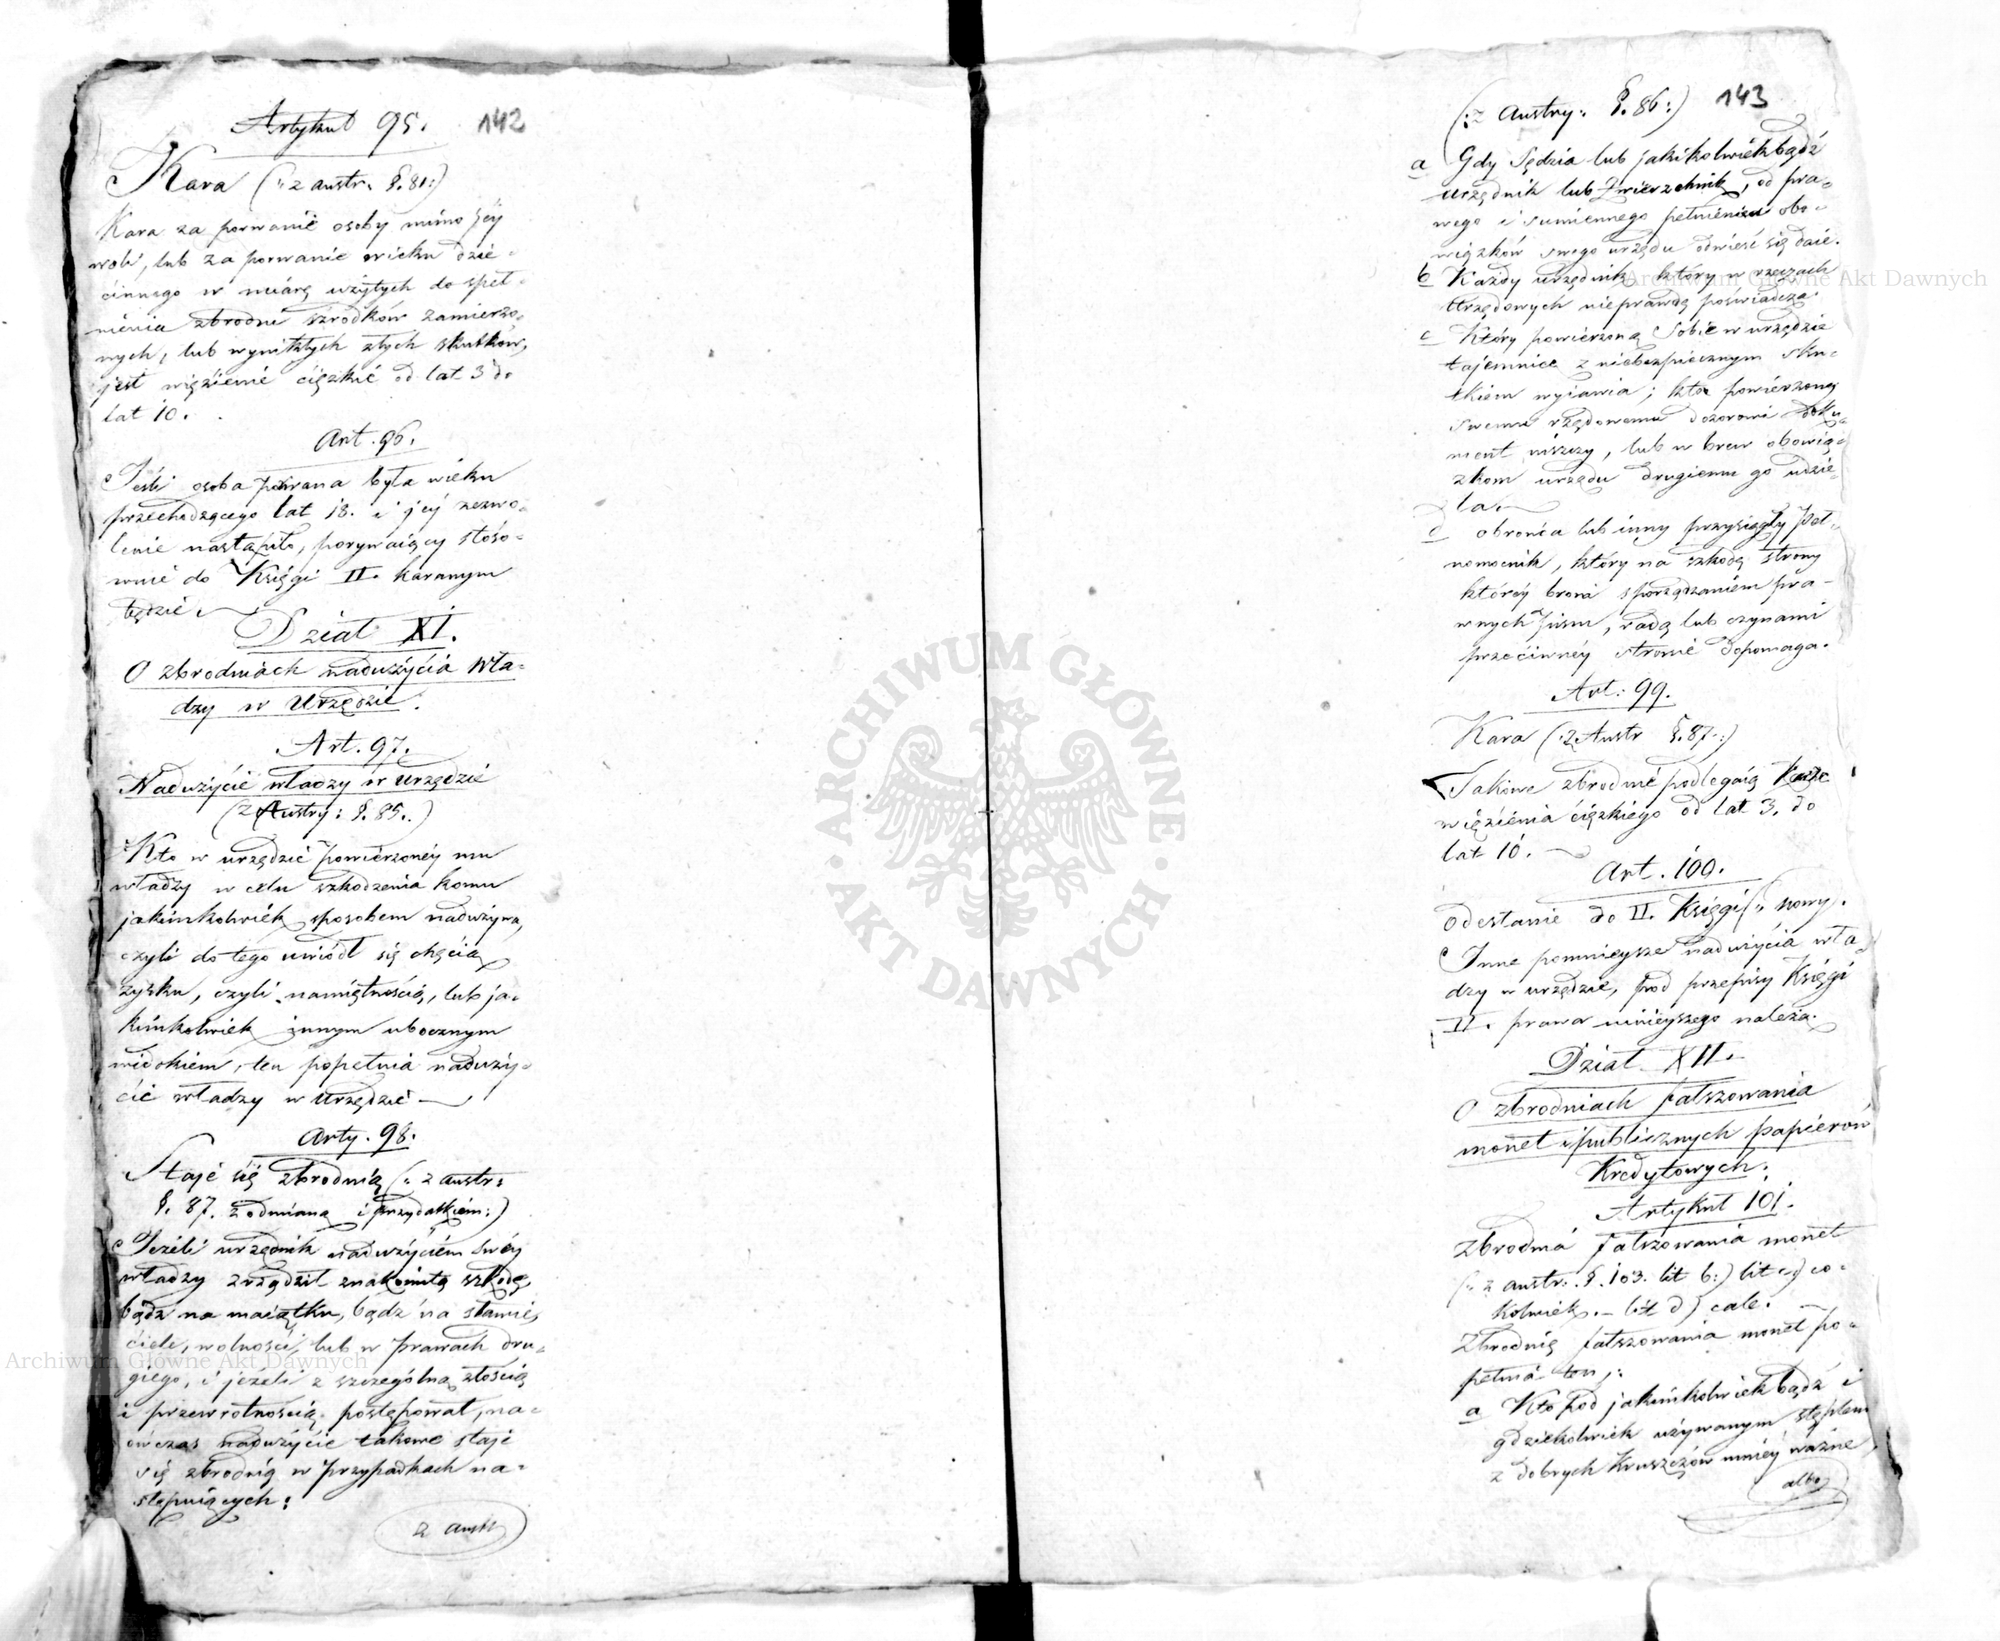 Artykuł 95. 142
Kara (: z austr. §. 81:)
Kara za porwanie osoby mimo jéy
woli, lub za porwanie wieku dzie-
cinnego w miarę użytych do speł-
nienia zbrodni szrodków zamierzo-
nych, lub wynikłych złych skutków,
jest więzienie ciężkie od lat 3 do
lat 10.
Art. 96.
Jeśli osoba porwana była wieku
przechodzącego lat 18. i jéy zezwo-
lenie nastąpiło, porywaiący stóso-
wnie do Księgi II. karanym
będzie.
Dział XI.
O zbrodniach nadużycia Wła-
dzy w Urzędzie.
Art. 97.
Nadużycie władzy w Urzędzie
(z Austry: §. 85.)
Kto w urzędzie powierzonéy mu
władzy w celu szkodzenia komu
jakimkolwiek sposobem nadużywa,
czyli do tego uwiódł się chęcią
zysku, czyli namiętnością, lub ja-
kimkolwiek innym ubocznym
widokiem, ten popełnia naduży-
cie władzy w Urzędzie
Arty. 98.
Staje się zbrodnią (: z austr:
§. 87. z odmianą i przydatkiem:)
Jeżeli urzędnik nadużyciem swéy
władzy zrządził znakomitą szkodę,
bądź na maiątku, bądź na sławie,
ciele, wolności, lub w prawach dru-
giego, i jeżeli z szczególną złością
i przewrotnością postępował, na-
ówczas nadużycie takowe staje
się zbrodnią w przypadkach na-
stępuiących:
z austr
(: z Austry: §. 86:) 143
a Gdy Sędzia lub jakikolwiekbądź
urzędnik lub Zwierzchnik, od pra-
wego i sumiennego pełnienia obo-
wiązków swego urzędu odwieść się daie.
b Każdy urzędnik który w rzeczach
Urzędowych nieprawdę poświadcza.
c Który powierzoną sobie w urzędzie
tajemnice z niebezpiecznym sku-
tkiem wyiawia; kto powierzony
swemu rządowemu dozorowi doku-
ment niszczy, lub w brew obowią-
zkom urzędu drugiemu go udzie-
la.
d obrońca lub inny przysięgły Peł-
nomocnik, który na szkodę strony
któréy broni sporządzaniem pra-
wnych pism, radą lub czynami
przeciwnéy stronie dopomaga.
Art. 99.
Kara (: z Austr §. 87.:)
Takowe zbrodnie podlegaią Karze
więzienia ciężkiego od lat 3. do
lat 10.
Art. 100.
Odesłanie do II. Księgi (: nowy.
Inne pomnieysze nadużycia wła-
dzy w urzędzie, pod przepisy Księgi
II. prawa ninieyszego należą.
Dział XII.
O zbrodniach fałszowania
monet i publicznych papierów
Kredytowych.
Artykuł 101.
Zbrodnia fałszowania monet
(: z austr: §. 103. lit b:) lit c) co-
kolwiek. – lit d) cale.
Zbrodnię fałszowania monet po-
pełnia ten;
a Kto pod jakimkolwiek bądź i
gdziekolwiek używanym stęplem
z dobrych Kruszczów mniéy ważne,
albo
Archiwum Główne Akt Dawnych
Archiwum Główne Akt Dawnych
ARCHIWUM GŁÓWNE
AKT DAWNYCH